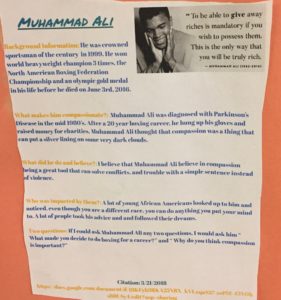 MUHAMMAD ALI
"To be able to give away
riches is mandatory if you
wish to possess them.
This is the only way that
you will be truly rich.
- MUHAMMAD ALI (1942-2016)
Background Information: He was crowned
sportsman of the century in 1999. He won
world heavyweight champion 3 times, the
North American Boxing Federation
Championship and an olympic gold medal
in his life before he died on June 3rd, 2016.
What makes him compassionate?: Muhammad Ali was diagnosed with Parkinson's
Disease in the mid 1980's. After a 20 year boxing career, he hung up his gloves and
raised money for charities. Muhammad Ali thought that compassion was a thing that
can put a silver lining on some very dark clouds.
What did he do and believe?: I believe that Muhammad Ali believe in compassion
being a great tool that can solve conflicts, and trouble with a simple sentence instead
of violence.
Who was impacted by them?: A lot of young African Americans looked up to him and
noticed, even though you are a different race, you can do anything you put your mind
to. A lot of people took his advice and and followed their dreams.
Two questions: If I could ask Muhammad Ali any two questions, I would ask him "
What made you decide to do boxing for a career?" and " Why do you think compassion
is important?"
Citation: 3/21/2018